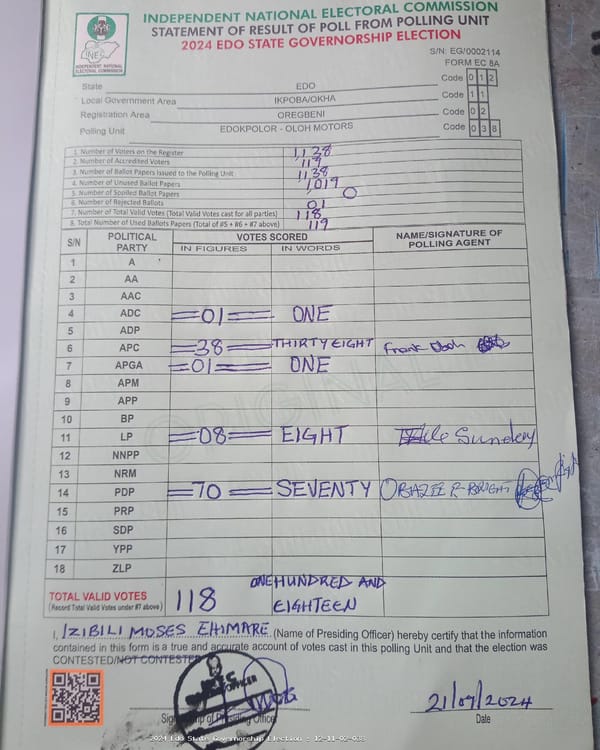 INDEPENDENT NATIONAL ELECTORAL COMMISSION
STATEMENT OF RESULT OF POLL FROM POLLING UNIT
2024 EDO STATE GOVERNORSHIP ELECTION
INEC
INDEPENDENT NATIONAL
ELECTORAL COMMISSION
S/N: EG/0002114
FORM EC 8A
State EDO Code 0 1 2
Local Government Area IKPOBA/OKHA Code 1 1
Registration Area OREGBENI Code 0 2
Polling Unit EDOKPOLOR - OLOH MOTORS Code 0 3 8
1. Number of Voters on the Register 1138
2. Number of Accredited Voters 119
3. Number of Ballot Papers Issued to the Polling Unit 1138
4. Number of Unused Ballot Papers 1019
5. Number of Spoiled Ballot Papers 0
6. Number of Rejected Ballots 01
7. Number of Total Valid Votes (Total Valid Votes cast for all parties) 118
8. Total Number of Used Ballots Papers (Total of #5 + #6 + #7 above) 119
S/N POLITICAL PARTY VOTES SCORED NAME/SIGNATURE OF POLLING AGENT
IN FIGURES IN WORDS
1 A
2 AA
3 AAC
4 ADC =01= ONE
5 ADP
6 APC =38= THIRTY EIGHT Frank
7 APGA =01= ONE
8 APM
9 APP
10 BP
11 LP =08= EIGHT Sunday
12 NNPP
13 NRM
14 PDP =70= SEVENTY
15 PRP
16 SDP
17 YPP
18 ZLP
ORIGINAL
TOTAL VALID VOTES 118 ONE HUNDRED AND
(Record Total Valid Votes under #7 above) EIGHTEEN
I, IZIBILI MOSES EHIMARE (Name of Presiding Officer) hereby certify that the information
contained in this form is a true and accurate account of votes cast in this polling unit and that the election was
CONTESTED/NOT CONTESTED
Signature of Presiding Officer
21/09/2024
Date
2024 Edo State Governorship Election - 12-11-02-038